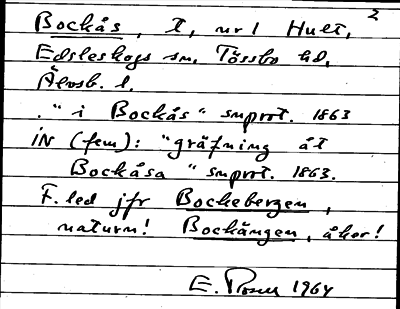 2
Bockås, t, nr 1 Hult,
Edsleskogs sn, Tössbo hd,
Älvsb. l.
"i Bockås" smprot. 1863
IN (fem): "gräfning åt
Bockåsa" smprot. 1863.
F. led jfr Bockebergen,
naturn! Bockängen, åker!
E. Rosen 1964